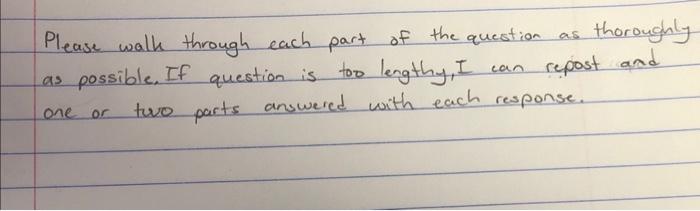 Please walk through each part of the question as thoroughly
as possible. If question is too lengthy, I can repost and
one or two parts answered with each response.